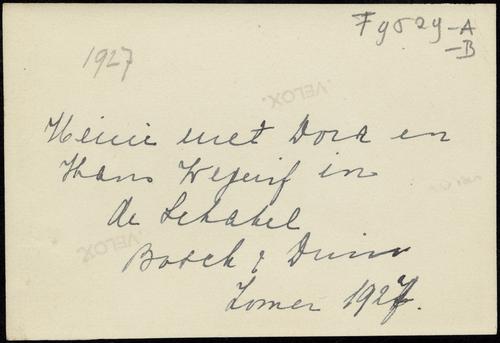 F9529-A
-B
1927
VELOX.
Heinie met Dora en
Hans Wegerif in
de Schakel
Bosch & Duin
Zomer 1927.
VELOX